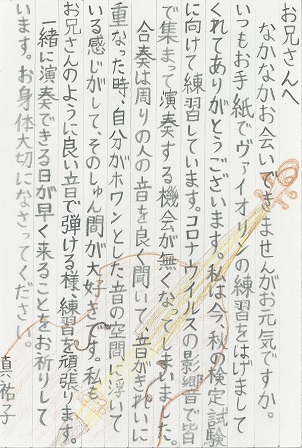 お兄さんへ
なかなかお会いできませんがお元気ですか。
いつもお手紙でヴァイオリンの練習をはげまして
くれてありがとうございます。私は今、秋の検定試験
に向けて練習しています。コロナウイルスの影響で皆
で集まって演奏する機会が無くなってしまいました。
合奏は周りの人の音を良く聞いて、音がきれいに
重なった時、自分がホワンとした音の空間に浮いて
いる感じがして、そのしゅん間が大好きです。私も
お兄さんのように良い音で弾ける様、練習を頑張ります。
一緒に演奏できる日が早く来ることをお祈りして
います。お身体大切になさってください。
真祐子